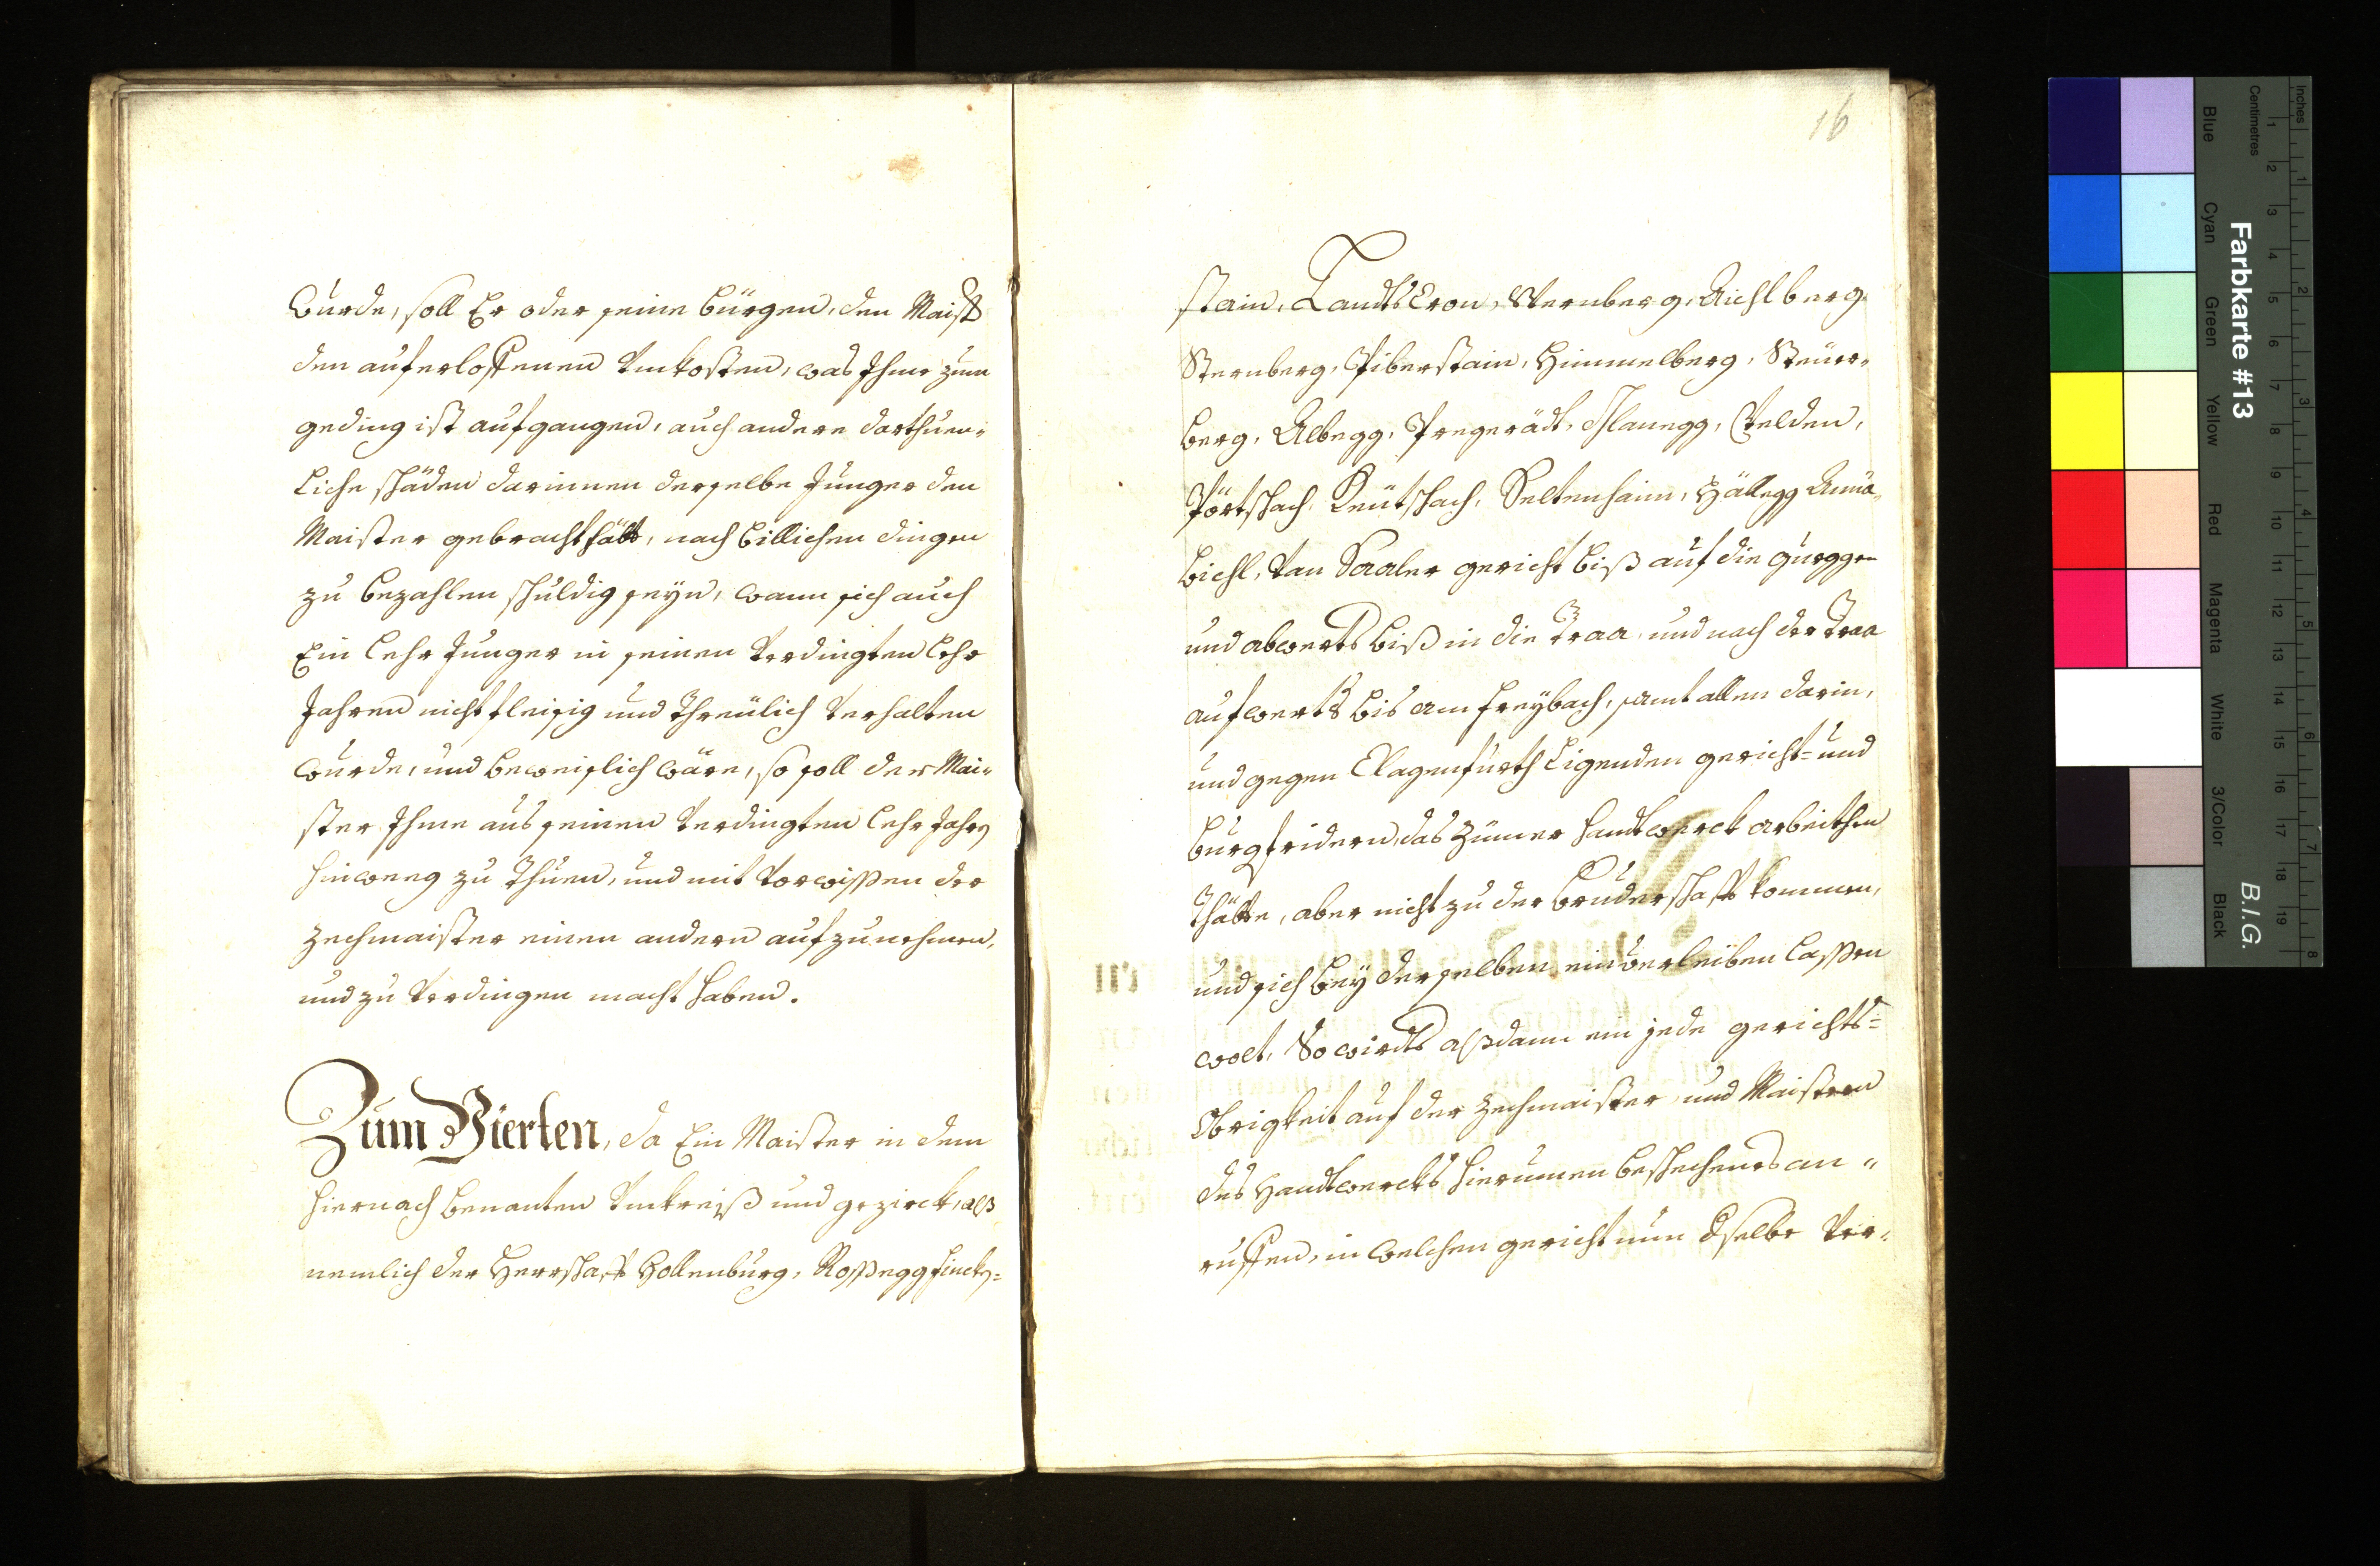 wurde, soll Er oder seine bürgen, den Maist
den auferloffenen Vnkosten, was Ihme zum
geding ist aufgangen, auch andere darthuen„
liche schäden darinnen derselbe Junger den
Maister gebracht hätt, nach billichen dingen
zu bezahlen schuldig seyn, wann sich auch
Ein lehr Junger in seinen Verdingten lehr
Jahren nicht fleisig und Threülich Verhalten
wurde, und beweislich wäre, so soll der Mai„
ster Ihme aus seinen Verdingten lehr Jahrn
hinweeg zu Thuen, und mit Vorwissen der
Zechmaister einen andern aufzunehmen,
und zu Verdingen macht haben.
Zum Vierten, da Ein Maister in dem
hiernach benanten Vmkreiß und gezirck, alß
nemlich der Herrschafft Hollenburg, Roßegg finck=
16
stain, LandtsCron, Sternberg, Aichlberg
Sternberg, Piberstain, Himmelberg, Steüer„
berg, Albegg, Pregerädt, Glanegg, Velden,
Pörtschach, Keütschach, Seltenhaim, Hällegg Anna„
bichl, Van Saaler gericht biß auf die gurggen
und abwerts biß in die Traa, und nach der Traa
aufwerts bis am freybach, samt allen darin,
und gegen Clagenfurth Ligenden gericht= und
burgfridern, das Zimmer handtwerck arbeithen
Thätte, aber nicht zu der bruderschafft kommen,
und sich bey derselben einverleiben lassen
wolt, So wirdts alßdann ein jede gerichts=
Obrigkeit auf der Zechmaister, und Maistern
des Handtwercks hierumen beschechends an„
ruffen, in welchen gericht nun dselbe Ver„